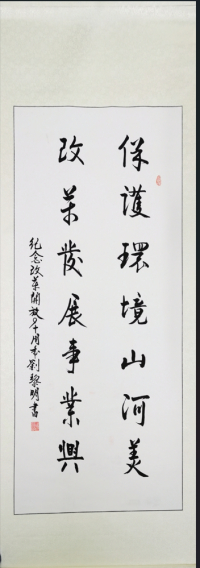 保護環境山河美
改革發展事業興
紀念改革開放十周年劉黎明書